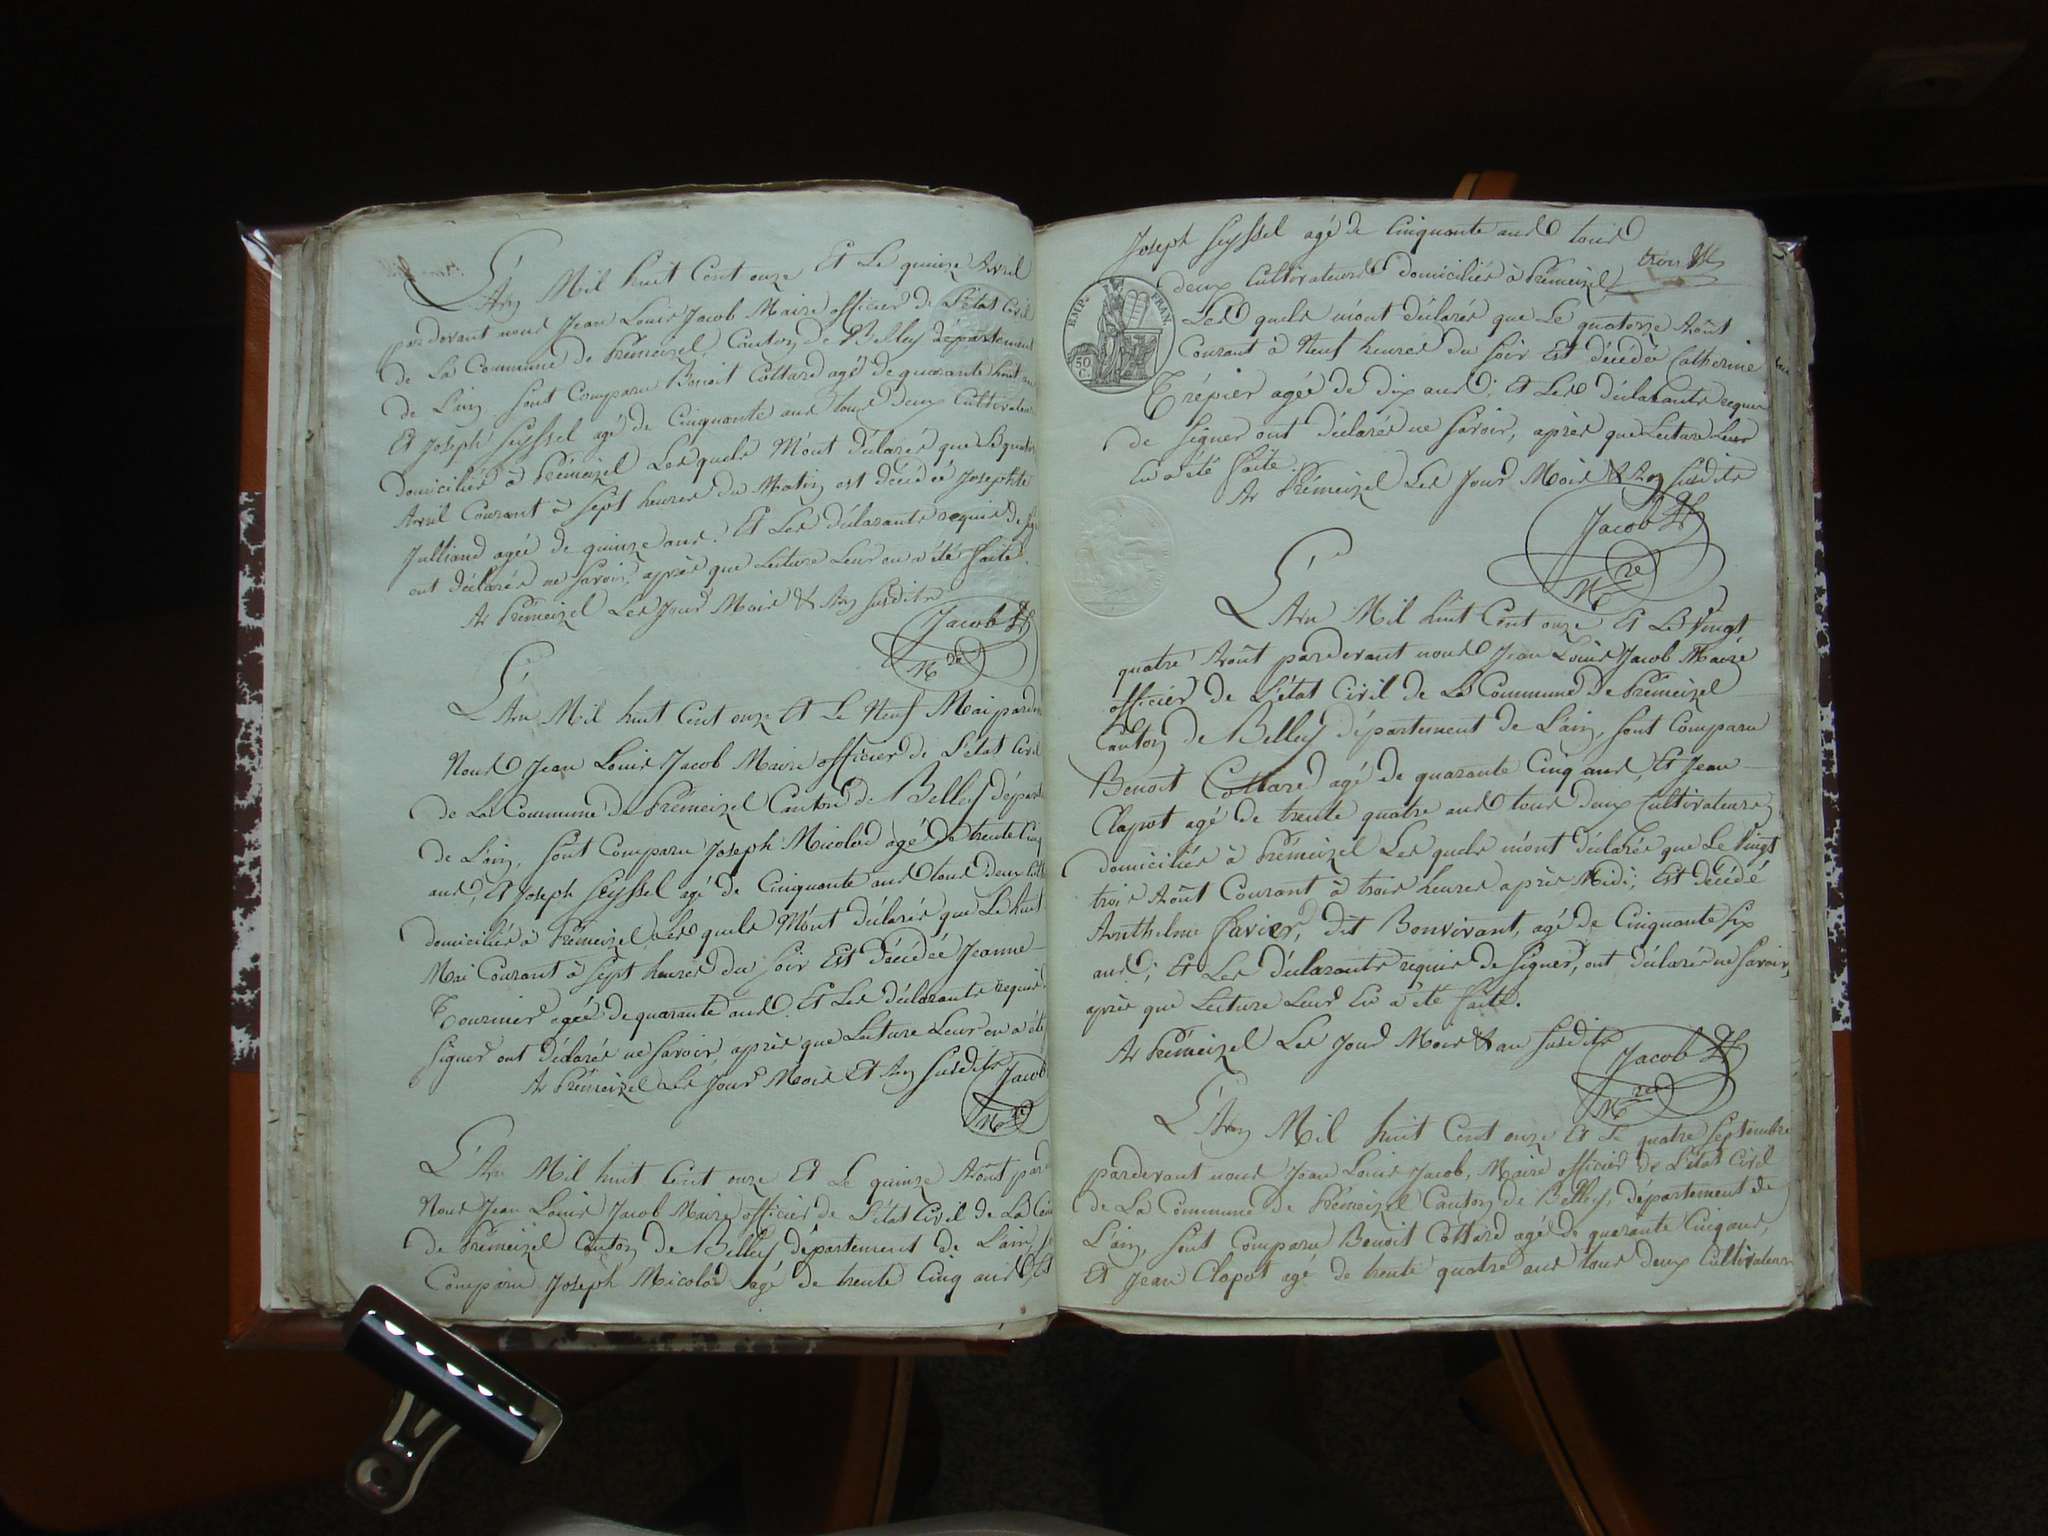 L'An Mil huit Cent onze Et Le quinze Avril
pardevant nous Jean Louis Jacob Maire officier de L'état Civil
de La Commune de Prémeizel, Canton de Belley département
de L'ain, sont Comparu Benoit Cottard agé de quarante huit
Et Joseph Seyssel agé de Cinquante ans tous deux Cultivateurs
domiciliés à Prémeizel Les quels M'ont déclarés que Le quatorze
Avril Courant à sept heures du Matin est décédée Josephte
Julliand agée de quinze ans. Et Les déclarants requis de
ont déclarés ne savoir, après que Lecture Leur en a été faite.
At Prémeizel Les Jour Mois & An susdits
Jacob
Mre
L'An Mil huit Cent onze Et Le Neuf Mai
Nous Jean Louis Jacob Maire officier de L'état Civil
de La Commune de Prémeizel Canton de Belley
de L'ain, sont Comparu Joseph Micolod agé de trente Cinq
ans, Et Joseph Seyssel agé de Cinquante ans tous deux
domiciliés à Prémeizel Les quels M'ont déclarés que Le huit
Mai Courant à sept heures du soir Est décédée Jeanne
Tournier agée de quarante ans. Et Les déclarants requis
signer ont déclarés ne savoir, après que Lecture Leur en a été
At Prémeizel Les Jour Mois Et An susdits
Jacob
Mre
L'An Mil huit Cent onze Et Le quinze Août
Nous Jean Louis Jacob Maire officier de L'état Civil de La
de Prémeizel Canton de Belley département de L'ain,
Comparu Joseph Micolod agé de trente Cinq ans Et
Joseph Seyssel agé de Cinquante ans tous
trois
deux Cultivateurs domiciliés à Prémeizel
EMP. FRAN.
50 C.
Les quels m'ont déclarés que Le quatorze Août
Courant à Neuf heures du soir Est décédée Catherine
Trépier agée de dix ans; Et Les déclarants requis
de signer ont déclarés ne savoir, après que Lecture Leur
En a été faite.
At Prémeizel Les Jour Mois & An susdits
Jacob
Mre
L'An Mil huit Cent onze Et Le Vingt
quatre Août pardevant nous Jean Louis Jacob Maire
officier de L'état Civil de La Commune de Prémeizel
Canton de Belley département de L'ain, sont Comparu
Benoit Cottard agé de quarante Cinq ans, Et Jean
Clapot agé de trente quatre ans tous deux Cultivateurs
domiciliés à Prémeizel Les quels m'ont déclarés que Le Vingt
trois Août Courant à trois heures après Midi, Est décédé
Anthelme Favier, dit Bonvivant, agé de Cinquante six
ans; Et Les déclarants requis de signer, ont déclarés ne savoir,
après que Lecture Leur En a été faite.
At Prémeizel Les Jour Mois & an susdits
Jacob
Mre
L'An Mil huit Cent onze Et Le quatre Septembre
pardevant nous Jean Louis Jacob, Maire officier de L'état Civil
de La Commune de Prémeizel Canton de Belley, département de
L'ain, sont Comparu Benoit Cottard agé de quarante Cinq ans,
Et Jean Clapot agé de trente quatre ans tous deux Cultivateurs